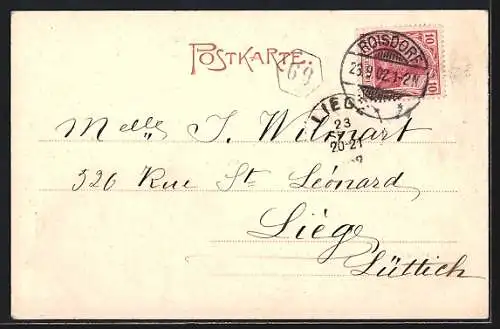 POSTKARTE.
69
10 10
ROISDORF
23.9 02.1-2N
LIEGE
23
20-21
Melle J. Wilmart
326 Rue St Léonard
Liége
Lüttich